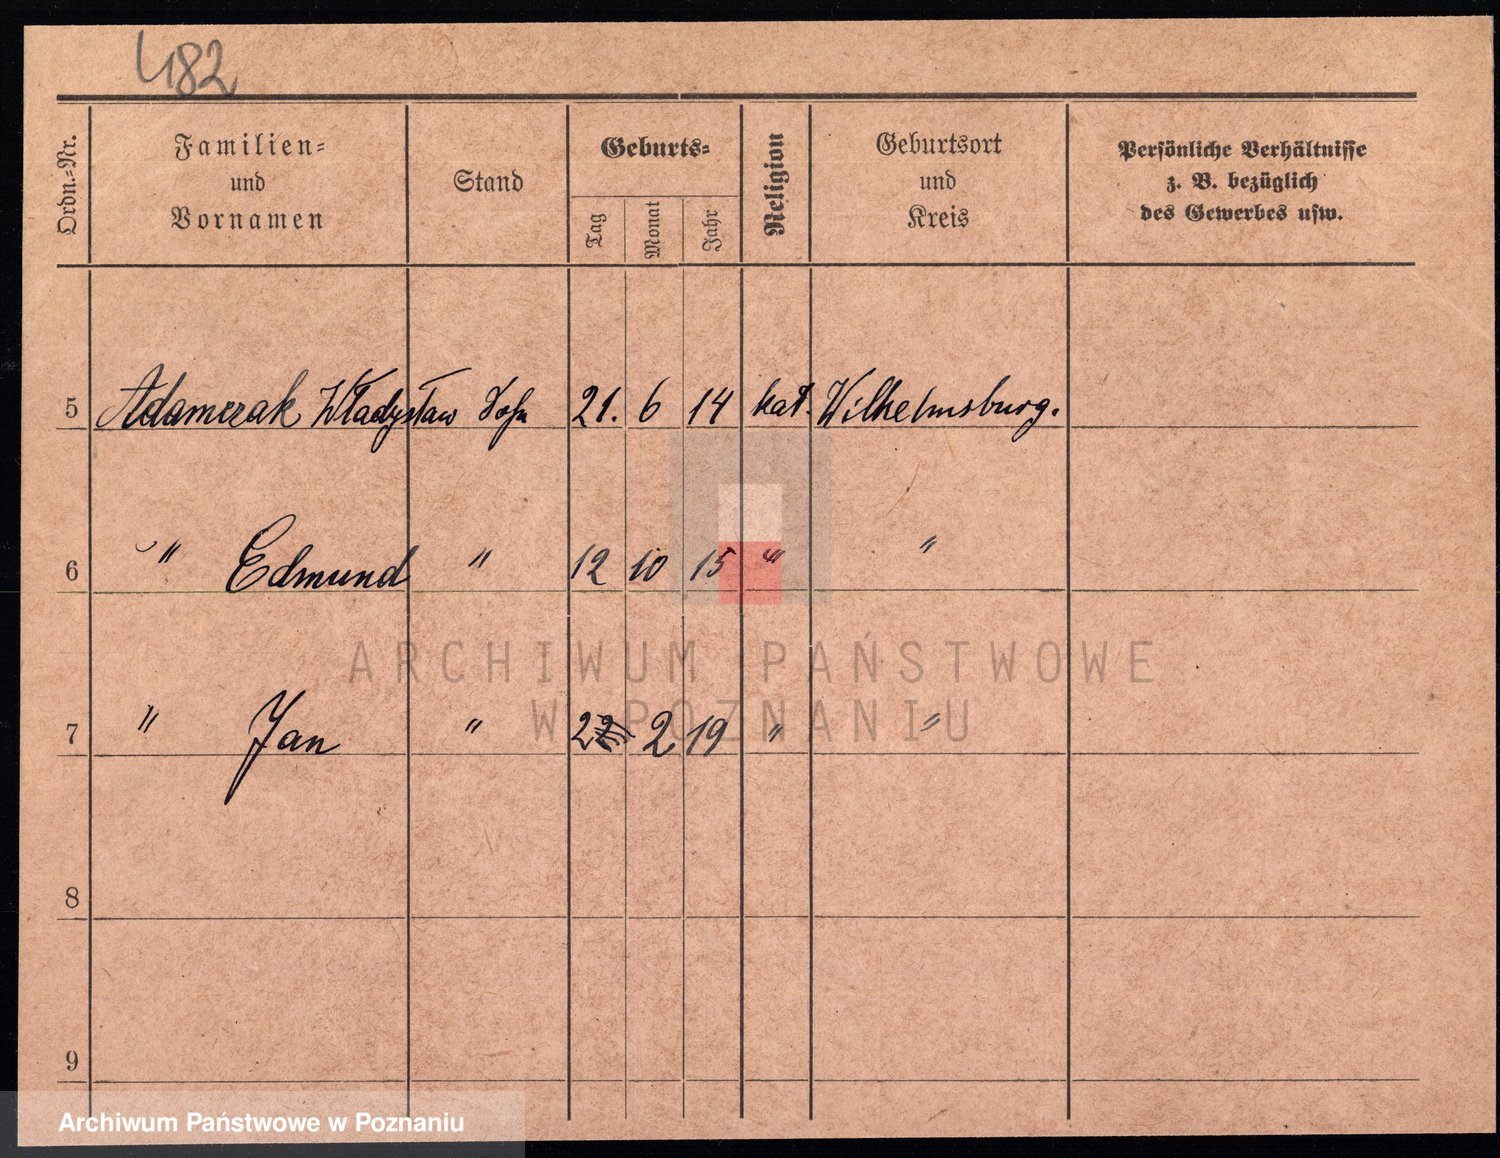 482
Ordn.=Nr.
Familien=
und
Vornamen
Stand
Geburts=
Tag
Monat
Jahr
Religion
Geburtsort
und
Kreis
Persönliche Verhältnisse
z. B. bezüglich
des Gewerbes usw.
5 Adamczak Władysław Sohn 21. 6 14 kat. Wilhelmsburg.
6 " Edmund " 12 10 15 " "
7 " Jan " 2 2 19 " "
8
9
ARCHIWUM PAŃSTWOWE
W POZNANIU
Archiwum Państwowe w Poznaniu